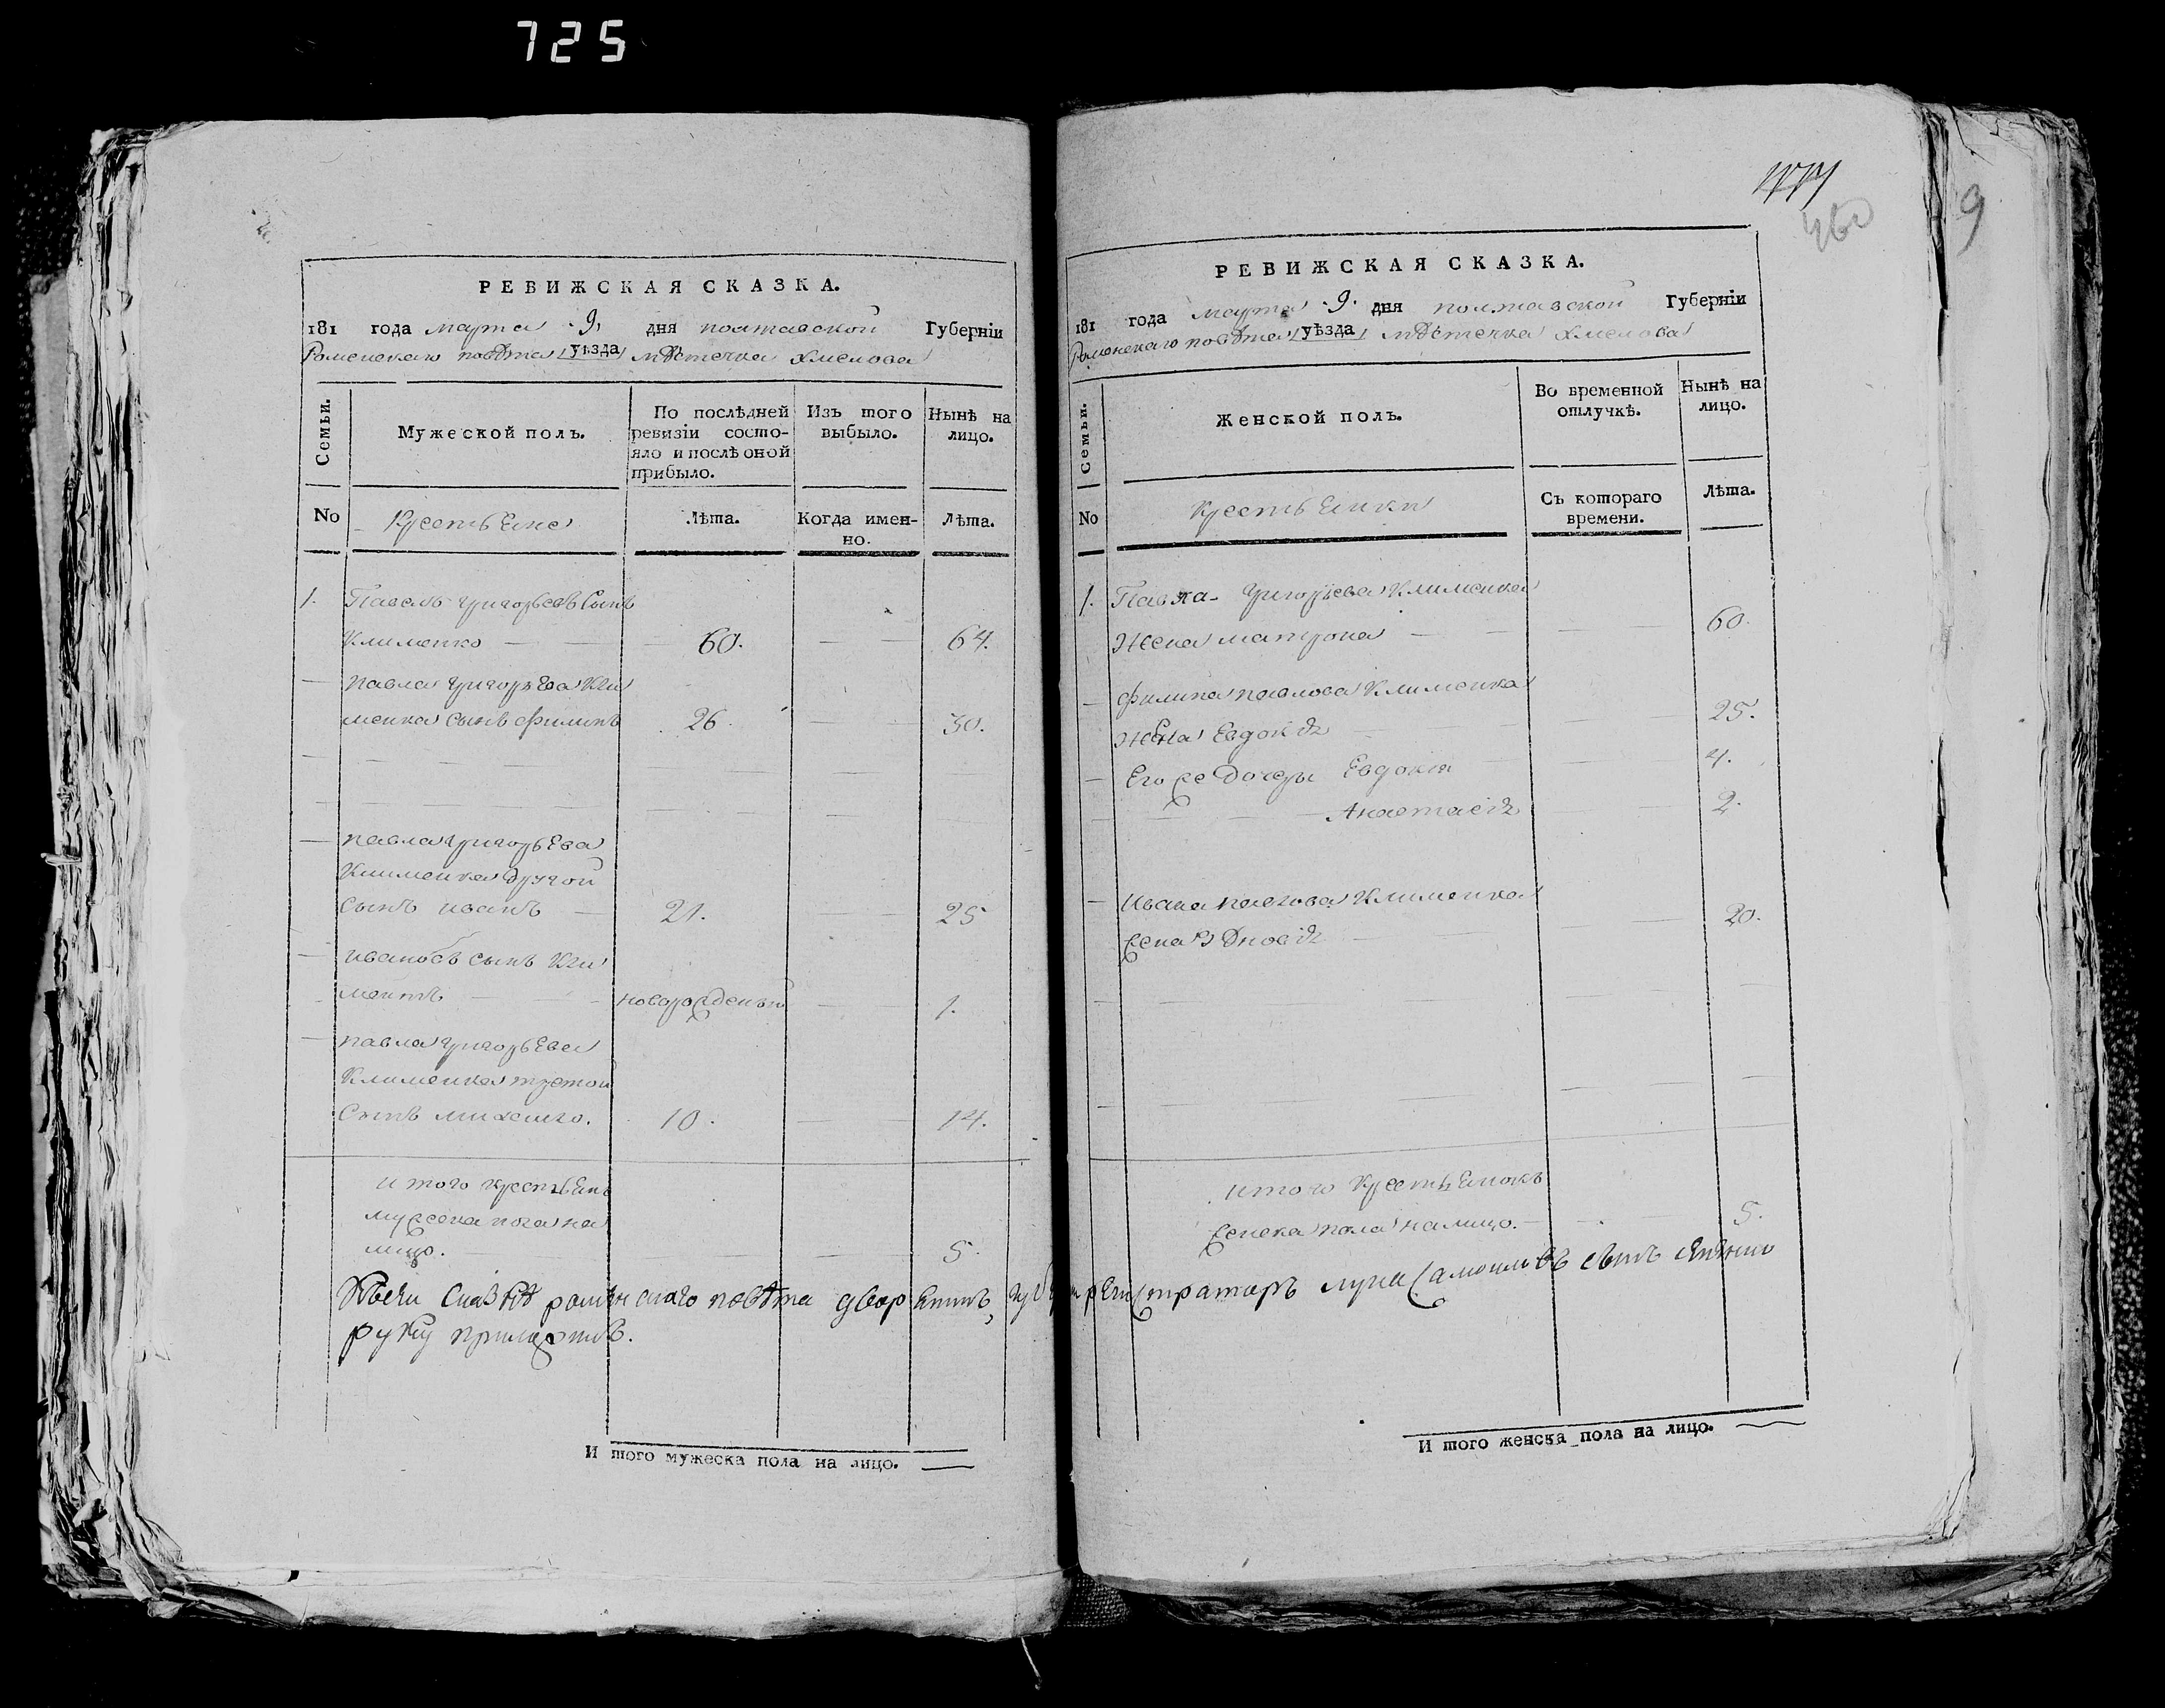 725
РЕВИЖСКАЯ СКАЗКА.
181 года марта 9, дня полтавской Губерніи
Роменскаго повѣта уѣзда мѣстечка Хмелова
Семьи.
Мужеской полъ.
По послѣдней ревизіи состояло и послѣ оной прибыло.
Изъ того выбыло.
Нынѣ на лицо.
No
Крестьяне
Лѣта.
Когда именно.
Лѣта.
1. Павелъ Григорьевъ сынъ
Клименко 60. 64.
Павла Григорьева Кли
менка сынъ Филипъ 26. 30.
Павла Григорьева
Клименка другой
сынъ иванъ 21. 25
ивановъ сынъ Кли
ментъ новорожденный 1.
Павла Григорьева
Клименка третой
Сынъ михайло. 10. 14.
итого крестьянъ
мужеска пола на
лицо. 5.
И того мужеска пола на лицо.
9
460
РЕВИЖСКАЯ СКАЗКА.
181 года марта 9. дня полтавской Губерніи
Роменскаго повѣта уѣзда мѣстечка Хмелова
Семьи.
Женской полъ.
Во временной отлучкѣ.
Нынѣ на лицо.
No
Крестьянки
Съ котораго времени.
Лѣта.
1. Павла Григорьева Клименка
Жена матрона 60.
Филипа павлова Клименка
Жена Евдокія 25.
Его же дочеры Евдокія 4.
Анастасія 2.
Ивана павлова Клименка
жена 20.
итого Крестьянокъ
женска пола налицо. 5.
К сказкѣ роменскаго повѣта дворянинъ, губ регистраторъ лука Самойловъ сынъ
руку приложилъ.
И того женска пола на лицо.